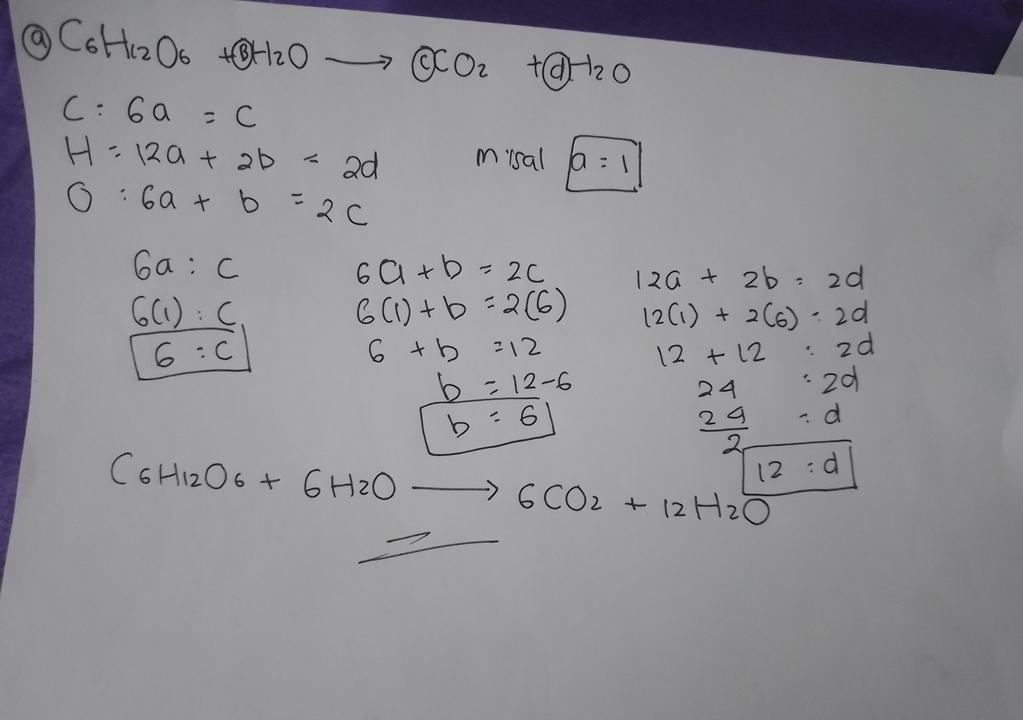 ⓐC6H12O6 +ⒷH2O → ⓒCO2 +ⓓH2O
C : 6a = C
H = 12a + 2b = 2d
misal a = 1
O : 6a + b = 2C
6a : C
6(1) : C
6 : C
6a + b = 2C
6(1) + b = 2(6)
6 + b = 12
b = 12-6
b = 6
12a + 2b = 2d
12(1) + 2(6) : 2d
12 + 12 : 2d
24 : 2d
24/2 = d
12 : d
C6H12O6 + 6H2O → 6CO2 + 12H2O